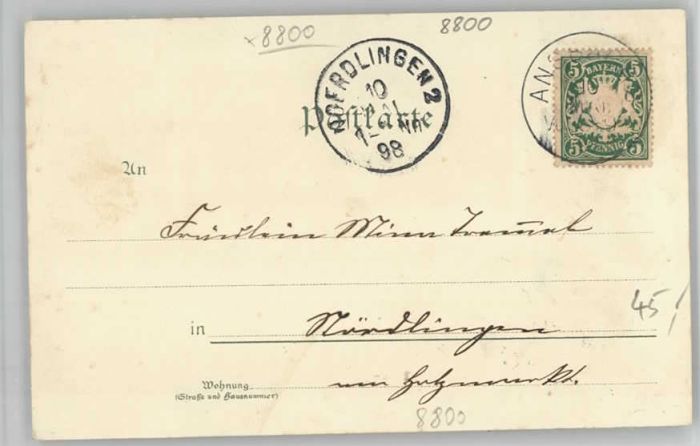 8800
8800
NOERDLINGEN 2
10
98
Postkarte
AN
5 BAYERN 5
5 PFENNIG 5
An
Fräulein Minna Trammel
45
in Nördlingen
Wohnung
(Straße und Hausnummer)
am Holzmarkt.
8800